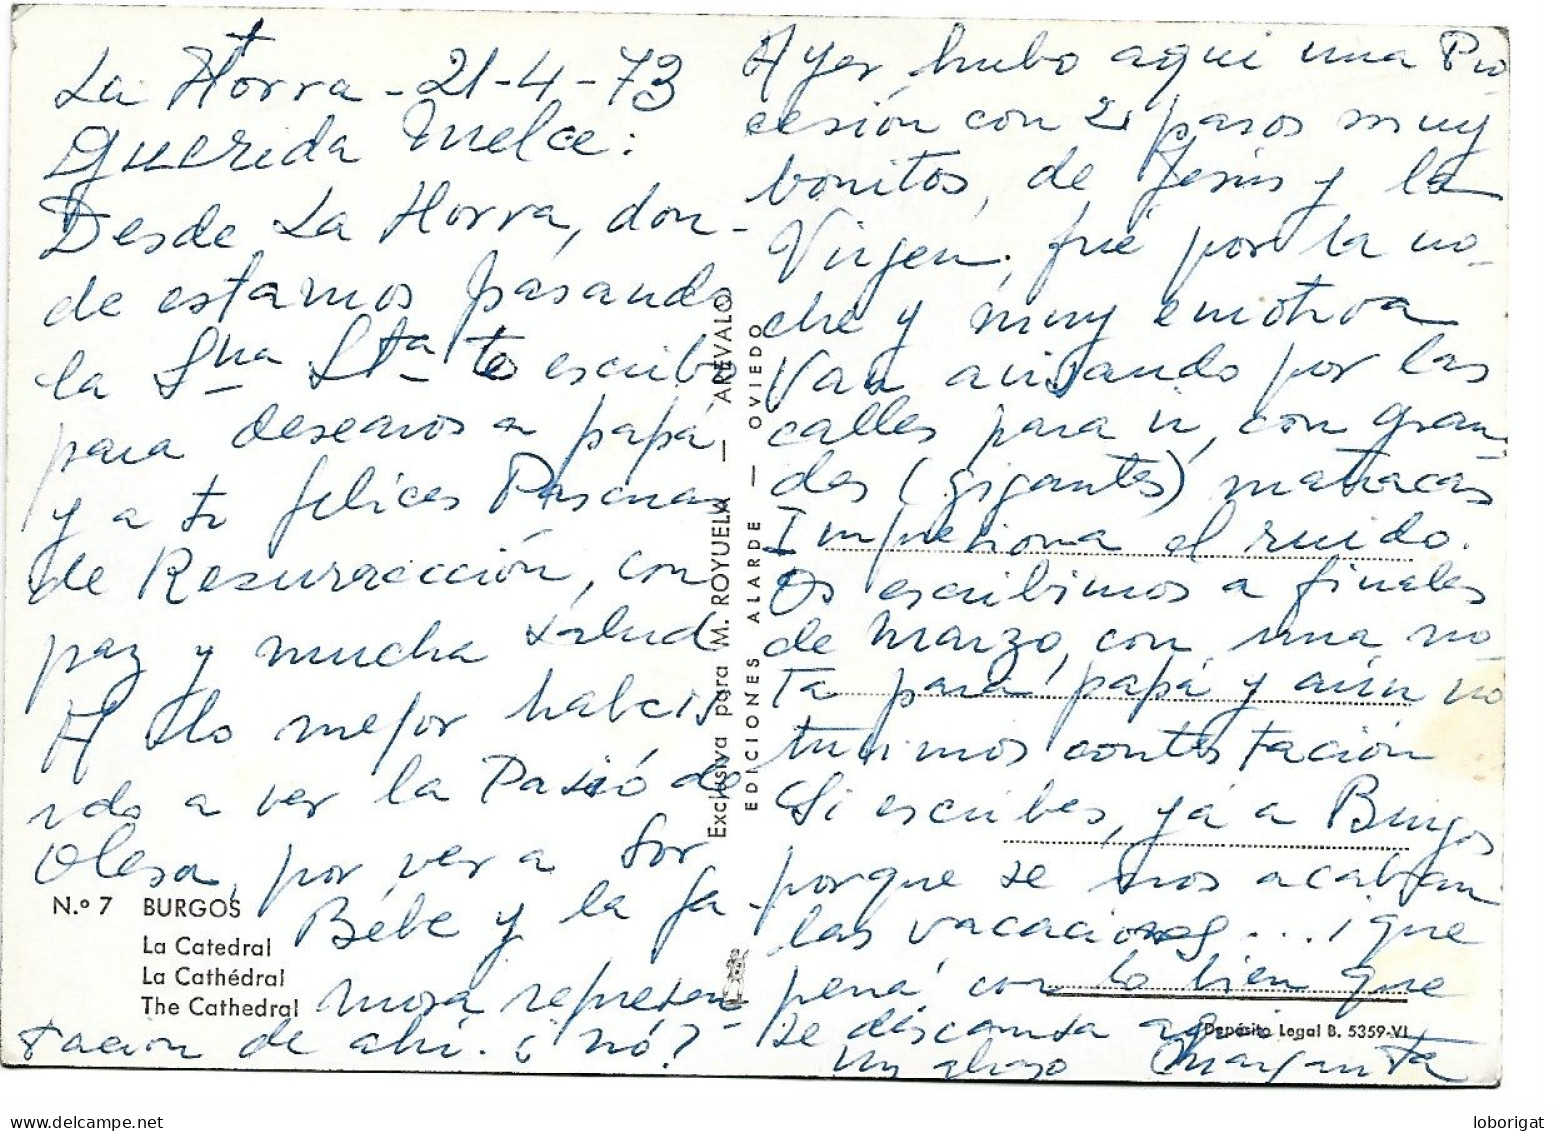 La Horra - 21-4-73
Querida Melce:
Desde La Horra, don-
de estamos pasando
la Sna Sta te escribo
para desearos a papá
y a ti felices Pascuas
de Resurrección, con
paz y mucha salud
A lo mejor habeis
ido a ver la Pasió de
Olesa, por ver a Sor
Bebé y la fa-
mosa represen-
tación de ahí. ¿nó?
Ayer hubo aqui una Pro
cesión con 2 pasos muy
bonitos, de Jesús y la
Virgen, fué por la no-
che y muy emotiva
Van avisando por las
calles para ir, con gran-
des (gigantes) matracas
Impresiona el ruido.
Os escribimos a finales
de marzo, con una no-
ta para papá y aún no
tuvimos contestación
Si escribes, yá a Burgos
porque se nos acaban
las vacaciones... ¡que
pena, con lo bien que
se descansa aqui
Un abrazo Margarita
Exclusiva para M. ROYUELA — AREVALO
EDICIONES ALARDE — OVIEDO
N.º 7 BURGOS
La Catedral
La Cathédral
The Cathedral
Depósito Legal B. 5359-VI
loborigat